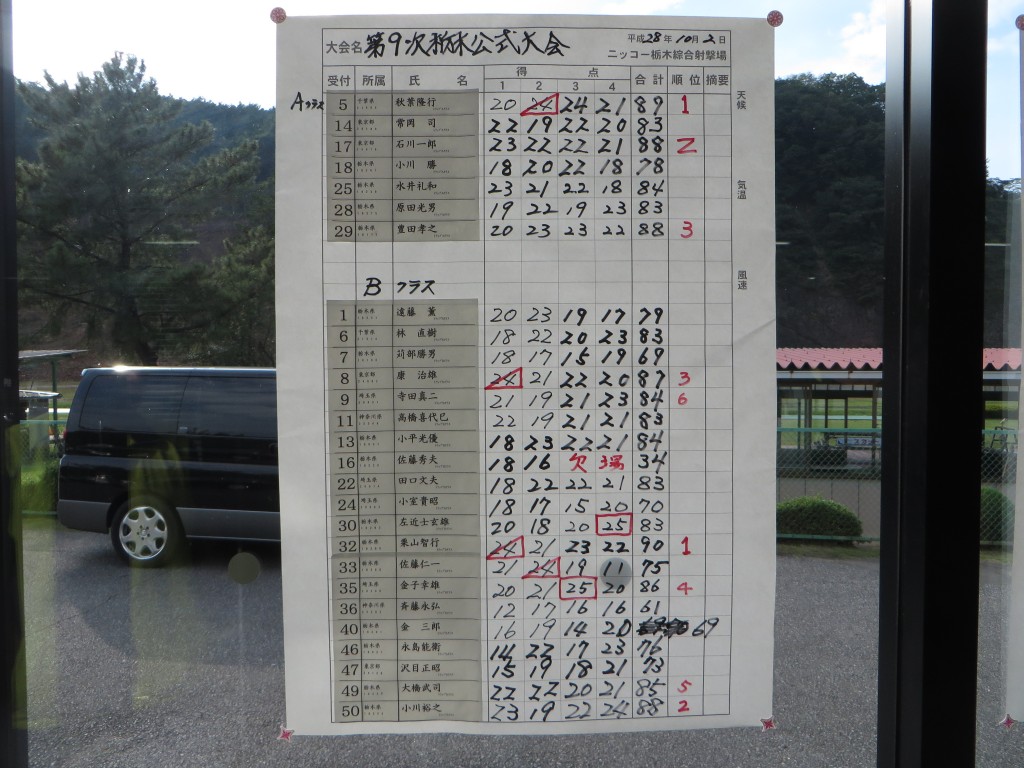 大会名 第9次栃木公式大会 平成28年10月2日
ニッコー栃木綜合射撃場
受付 所属 氏 名 得 点 合計 順位 摘要
1 2 3 4
天候
気温
風速
Aクラス
5 千葉県 秋葉隆行 20 24 24 21 89 1
14 東京都 常岡 司 22 19 22 20 83
17 東京都 石川一郎 23 22 22 21 88 2
18 栃木県 小川 勝 18 20 22 18 78
25 栃木県 水井礼和 23 21 22 18 84
28 栃木県 原田光男 19 22 19 23 83
29 栃木県 豊田孝之 20 23 23 22 88 3
B クラス
1 栃木県 遠藤 薫 20 23 19 17 79
6 千葉県 林 直樹 18 22 20 23 83
7 栃木県 苅部勝男 18 17 15 19 69
8 東京都 康 治雄 24 21 22 20 87 3
9 埼玉県 寺田真二 21 19 21 23 84 6
11 神奈川県 高橋喜代巳 22 19 21 21 83
13 栃木県 小平光優 18 23 22 21 84
16 栃木県 佐藤秀夫 18 16 欠 場 34
22 埼玉県 田口文夫 18 22 22 21 83
24 埼玉県 小室貴昭 18 17 15 20 70
30 栃木県 左近士玄雄 20 18 20 25 83
32 栃木県 栗山智行 24 21 23 22 90 1
33 栃木県 佐藤仁一 21 24 19 11 75
35 埼玉県 金子幸雄 20 21 25 20 86 4
36 神奈川県 斉藤永弘 12 17 16 16 61
40 栃木県 金 三郎 16 19 14 20 69
46 栃木県 永島能衛 14 22 17 23 76
47 東京都 沢目正昭 15 19 18 21 73
49 栃木県 大橋武司 22 22 20 21 85 5
50 栃木県 小川裕之 23 19 22 24 88 2